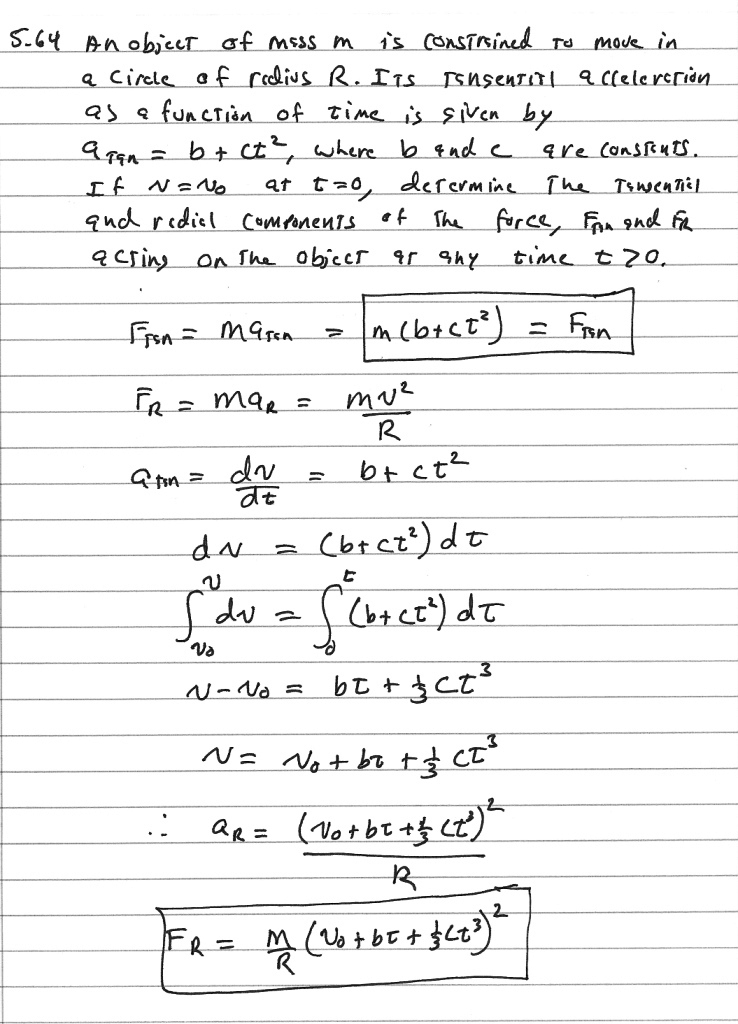 5-64 An object of mass m is constrained to move in
a circle of radius R. Its tangential acceleration
as a function of time is given by
a_tan = b + ct², where b and c are constants.
If v = v₀ at t = 0, determine the tangential
and radial components of the force, F_tan and F_R
acting on the object at any time t > 0.
F_tan = ma_tan = m(b + ct²) = F_tan
F_R = ma_R = mv²/R
a_tan = dv/dt = b + ct²
dv = (b + ct²) dt
∫_{v₀}^{v} dv = ∫_{0}^{t} (b + ct²) dt
v - v₀ = bt + ⅓ct³
v = v₀ + bt + ⅓ct³
∴ a_R = (v₀ + bt + ⅓ct³)²/R
F_R = m/R (v₀ + bt + ⅓ct³)²